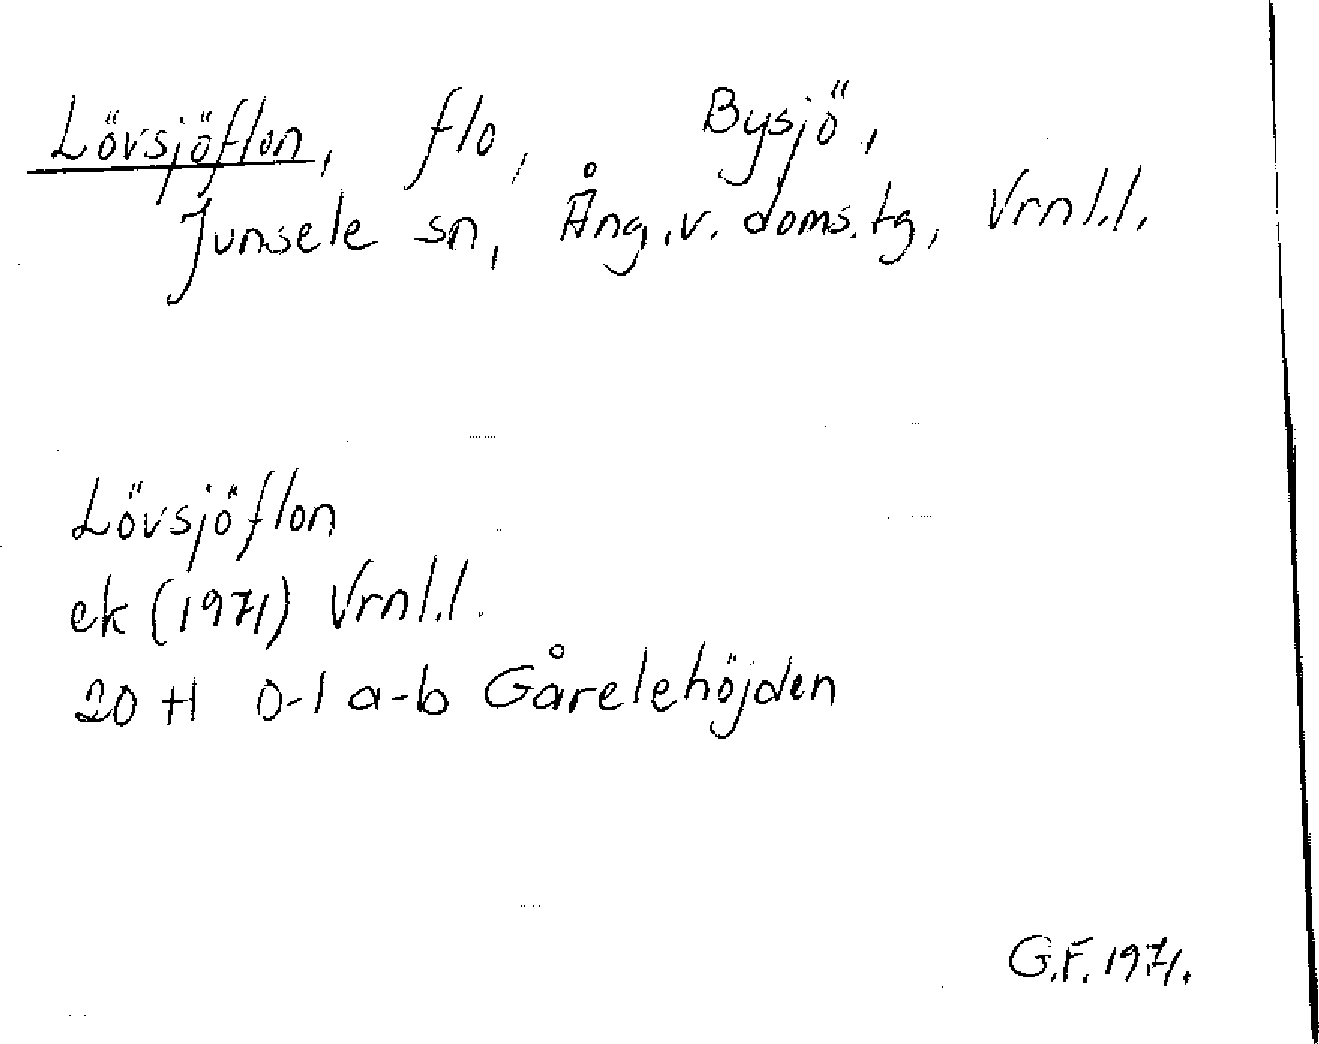 Lövsjöflon, flo, Bysjö,
Junsele sn, Ång.v. doms.tg, Vrnl.l.
Lövsjöflon
ek (1971) Vrnl.l.
20 H 0-1 a-b Gårelehöjden
G.F. 1971.